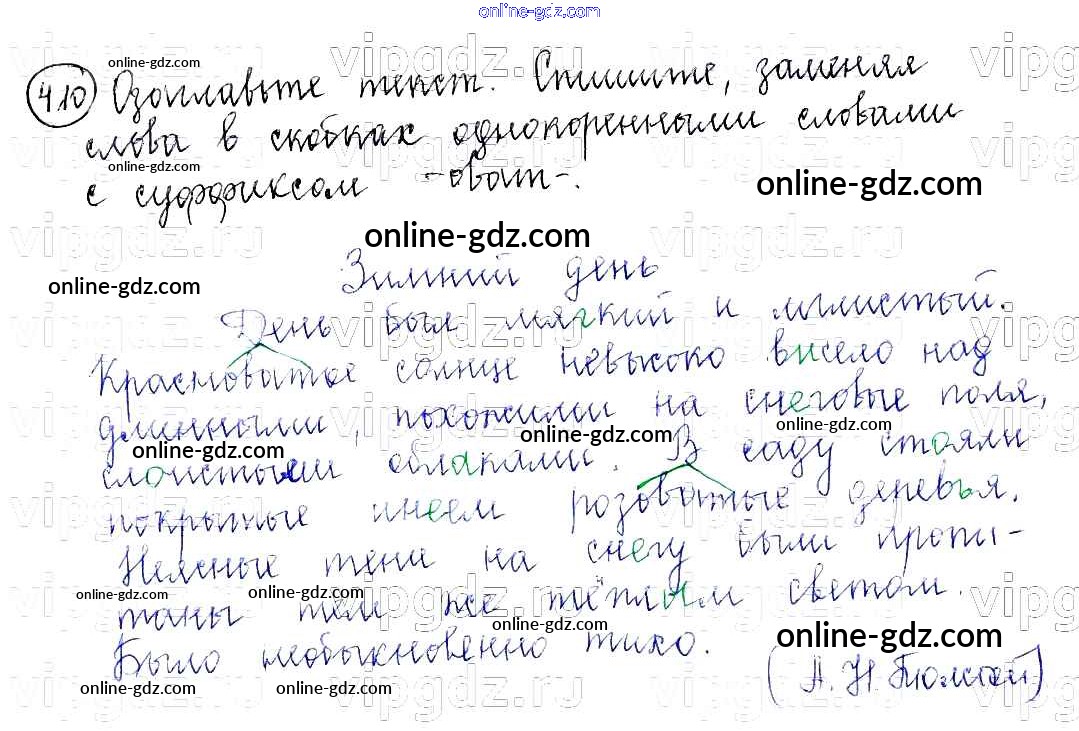 online-gdz.com
vipgdz.ru vipgdz.ru vipgdz.ru
online-gdz.com
410 Озаглавьте текст. Спишите, заменяя
слова в скобках однокоренными словами
online-gdz.com
с суффиксом -оват-.
online-gdz.com
online-gdz.com
Зимний день
online-gdz.com
День был мягкий и мглистый.
Красноватое солнце невысоко висело над
длинными, похожими на снеговые поля,
online-gdz.com online-gdz.com online-gdz.com
слоистыми облаками. В саду стояли
покрытые инеем розоватые деревья.
Неясные тени на снегу были пропи-
online-gdz.com online-gdz.com
таны тем же тёплым светом.
online-gdz.com online-gdz.com
Было необыкновенно тихо.
(А. Н. Толстой)
online-gdz.com online-gdz.com